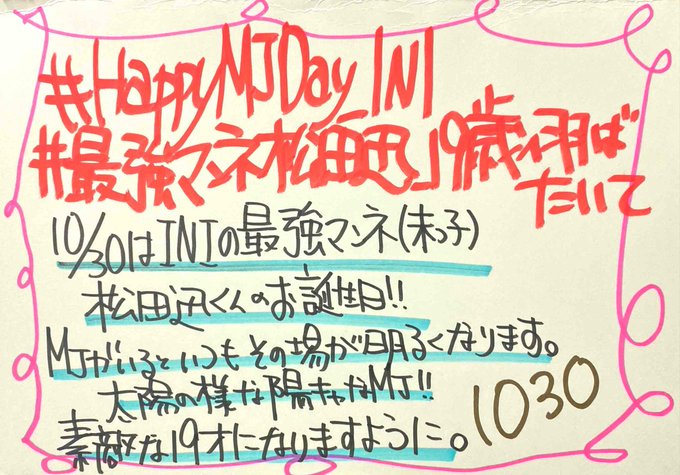 #HappyMJDay_INI
#最強マンネ松田迅_19歳へ羽ば
たいて
10/30はINIの最強マンネ(末っ子)
松田迅くんのお誕生日!!
MJがいるといつもその場が明るくなります。
太陽の様な陽キャなMJ!!
素敵な19才になりますように。
1030